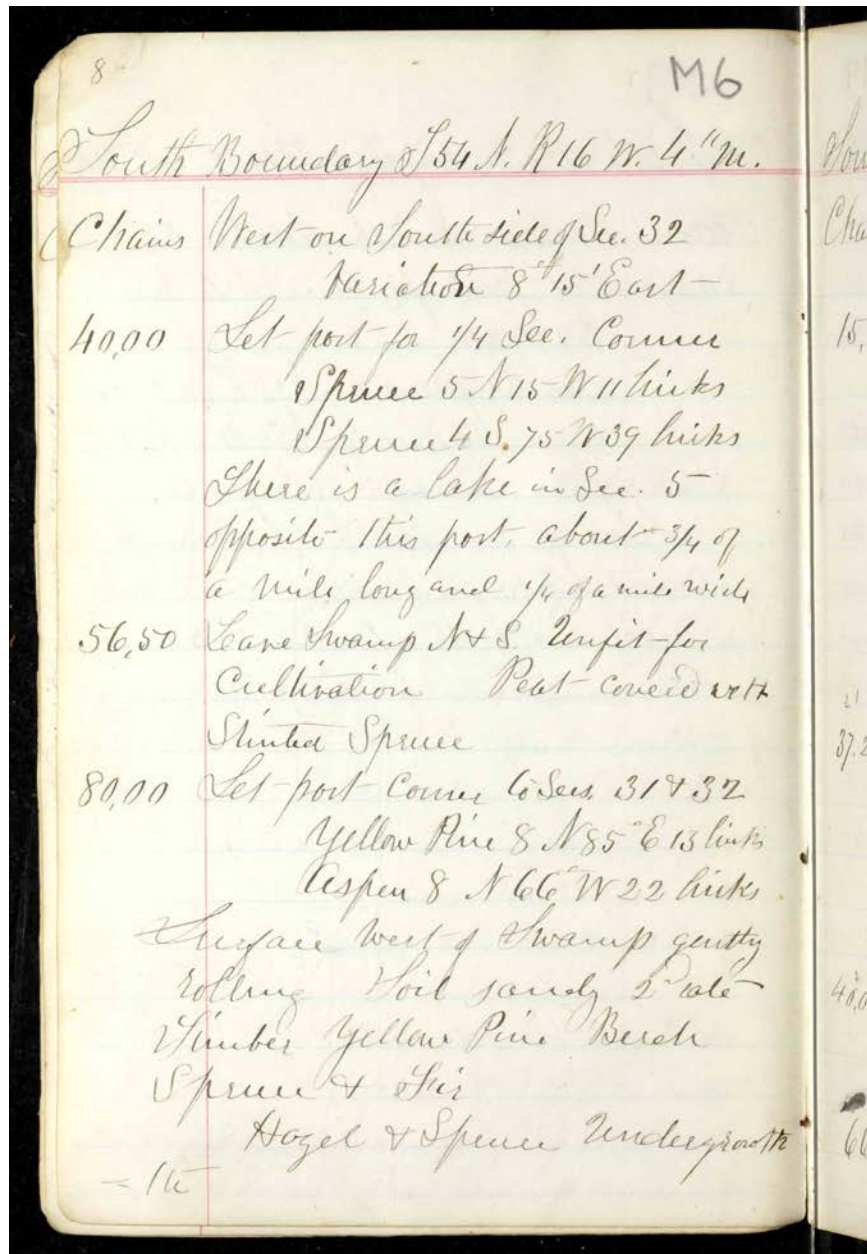 8
M6
South Boundary T54 N. R16 W. 4" M.
Chains West on South side of Sec. 32
Variation 8° 15' East
40,00 Set post for 1/4 Sec. Corner
Spruce 5 N 15 W 11 links
Spruce 4 S. 75 W 39 links
There is a lake in Sec. 5
opposite this post. about 3/4 of
a mile long and 1/4 of a mile wide
56,50 Leave Swamp N & S. Unfit for
Cultivation Peat covered with
Stinted Spruce
80,00 Set post Corner to Secs. 31 & 32
Yellow Pine 8 N 85° E 13 links
Aspen 8 N 66° W 22 links
Surface West of Swamp gently
rolling Soil sandy 2d rate
Timber Yellow Pine Birch
Spruce & Fir
Hazel & Spruce Undergrowth
Sou
Cha
15,
37.2
40,0